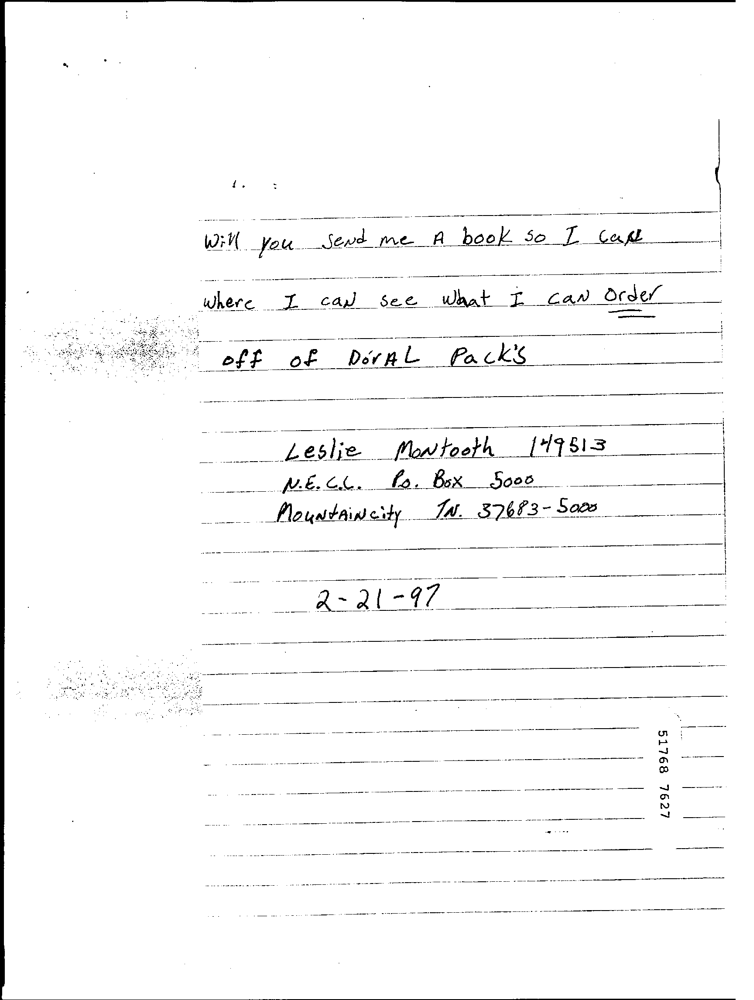 Will you send me A book so I can
where I can see what I can order
off of DorAL Pack's
Leslie Montooth 149513
N.E.C.C. Po. Box 5000
MountAin city TN. 37683-5000
2-21-97
51768 7627